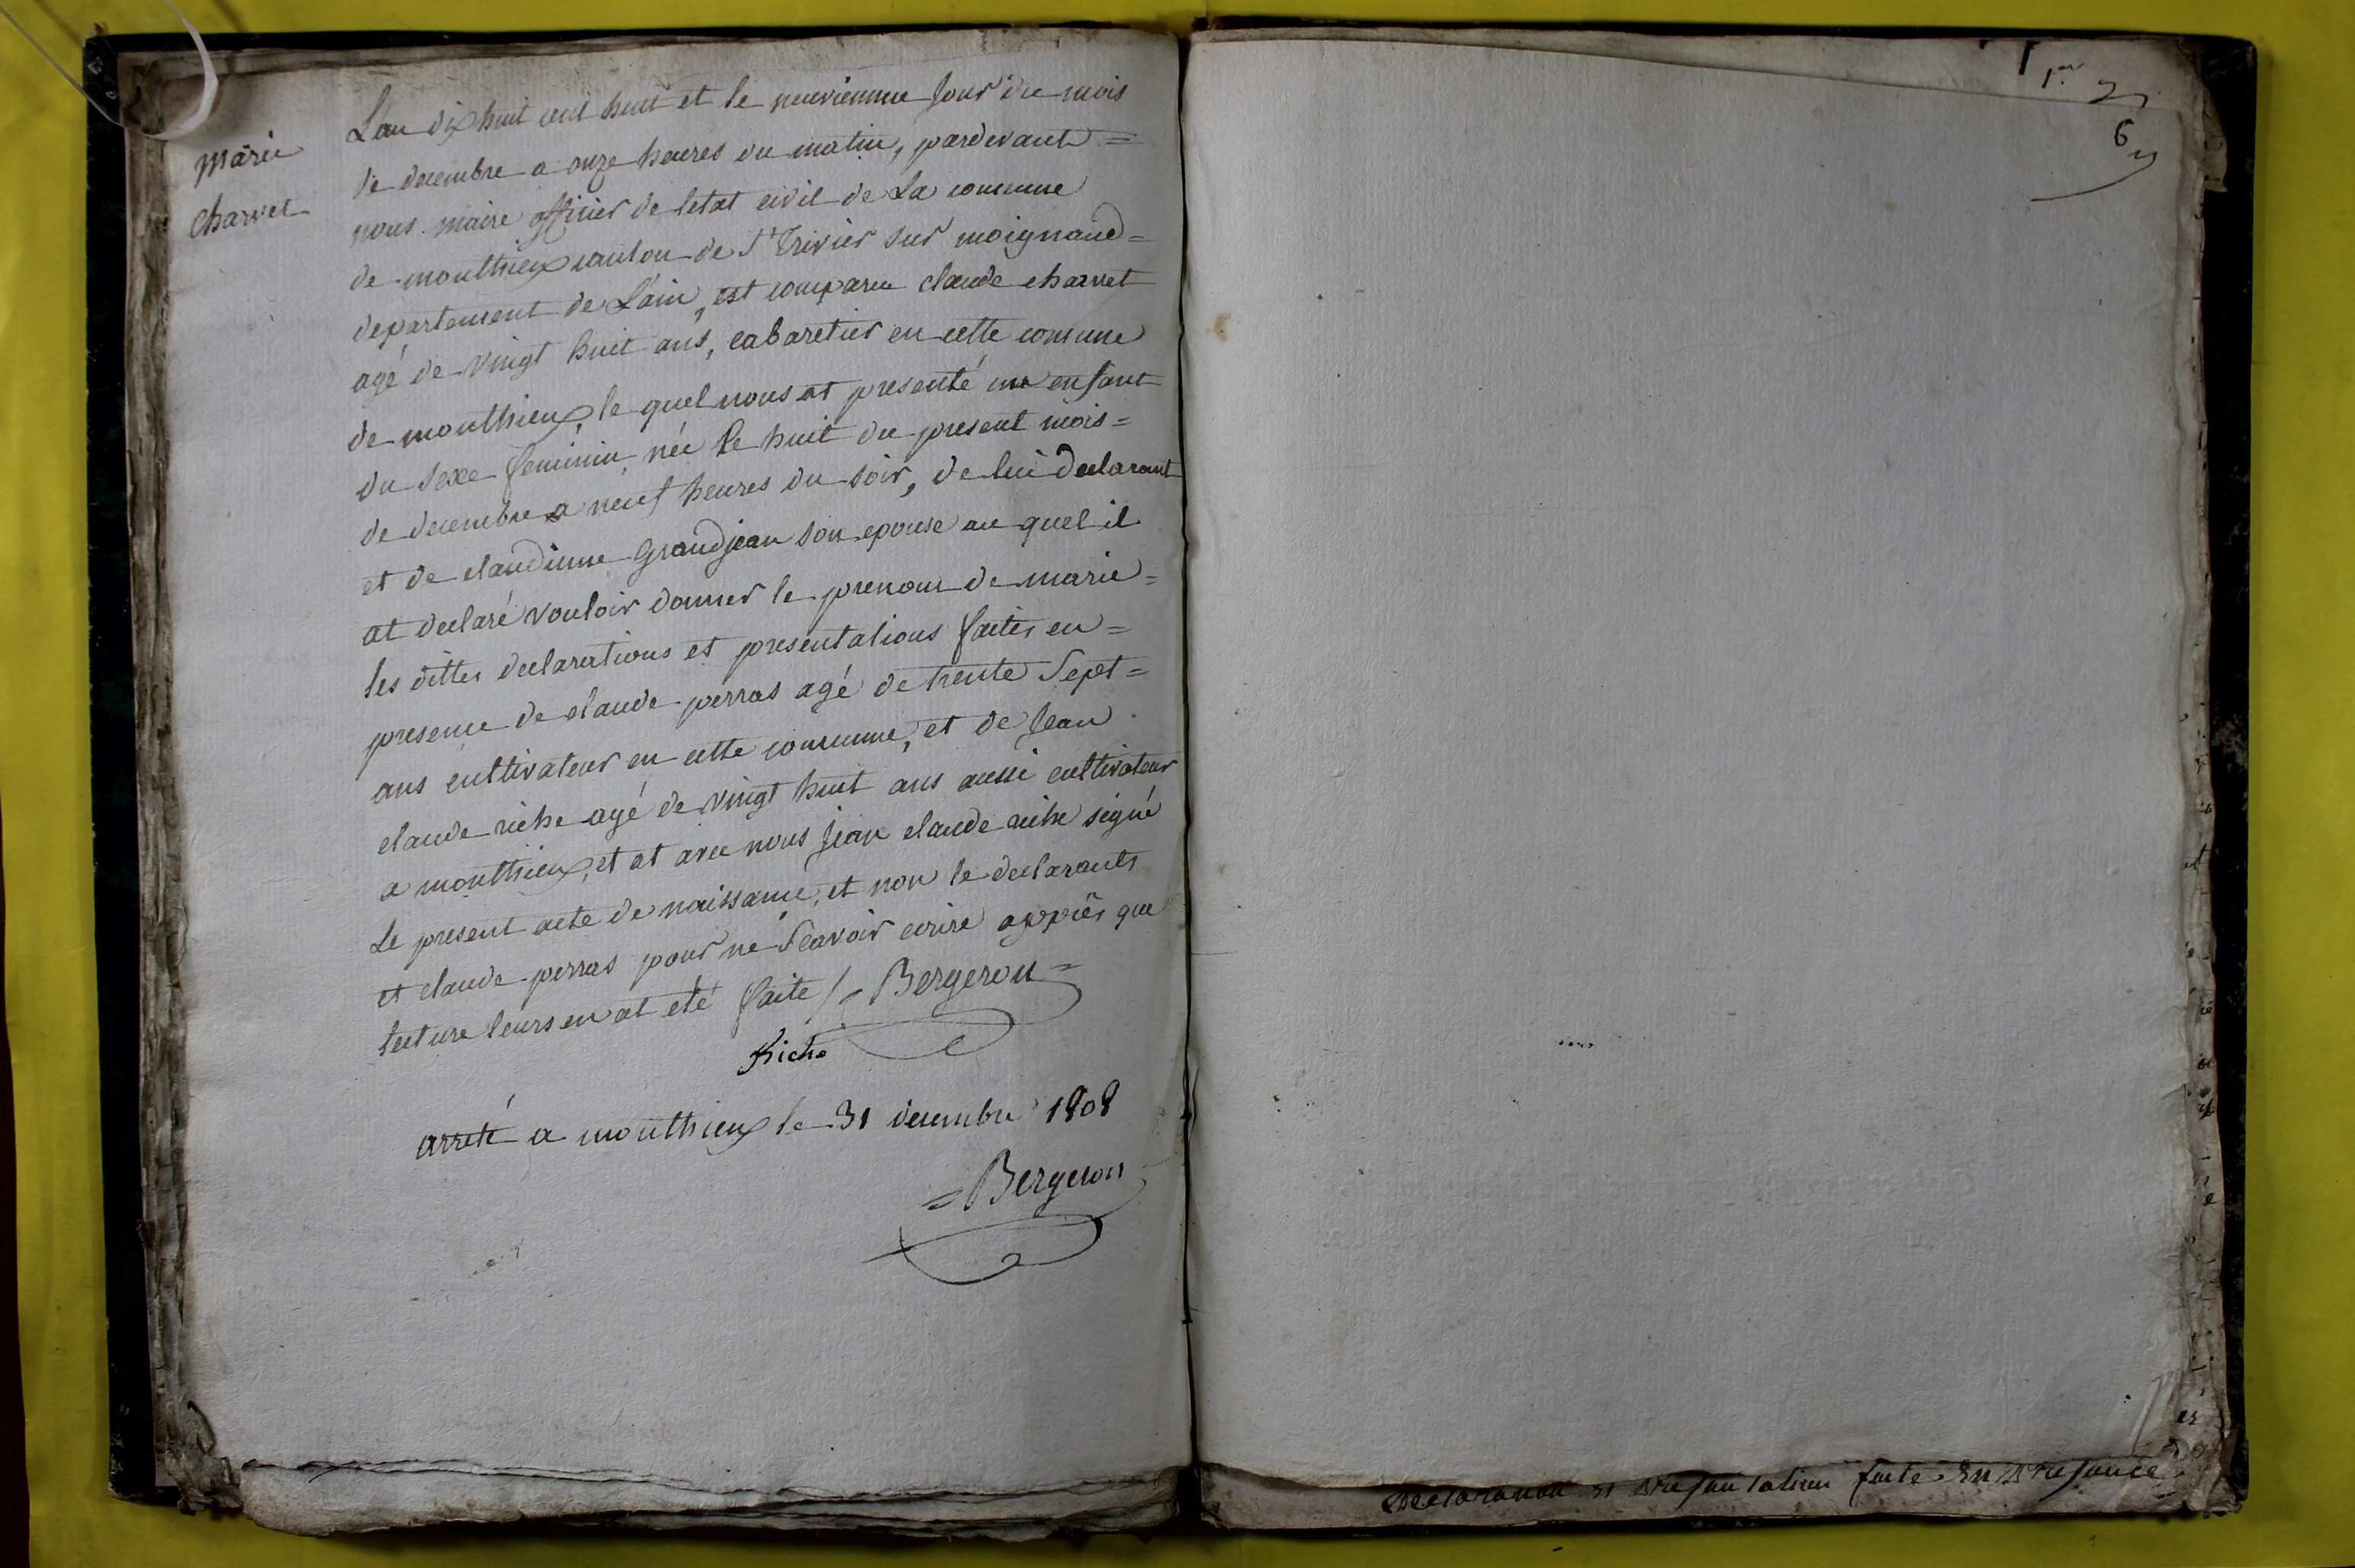 Marie
Charvet
Lan dix huit cent huit et le neuvienme Jour du mois
de decembre a onze heures du matin, pardevant =
nous maire officier de letat civil de La commune
de monthieux canton de St Trivier sur moignand =
departement de Lain, est comparu claude charvet
agé de vingt huit ans, cabaretier en cette comune
de monthieux, le quel nous at presenté un enfant
du sexe feminin, née le huit du present mois =
de decembre a neuf heures du soir, de lui declarant
et de claudinne Grandjean son epouse au quel il
at declaré vouloir donner le prenom de marie =
les dittes declarations et presentations faites en =
presence de claude perras agé de trente Sept =
ans cultivateur en cette commune, et de Jean
claude riche agé de vingt huit ans aussi cultivateur
a monthieux, et at avec nous Jean claude riche signé
Le present acte de naissance, et non le declarants
et claude perras pour ne Scavoir ecrire apprès que
lecture leurs en at eté faite / = Bergeron =
Riche
arreté a monthieux le 31 decembre 1808
= Bergeron
1er
6
Declaration et presentation faite en presance